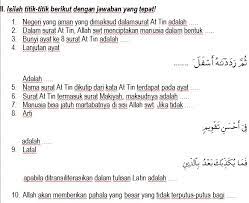 II. Isilah titik-titik berikut dengan jawaban yang tepat!
1. Negeri yang aman yang dimaksud dalamsurat At Tin adalah .....
2. Dalam surat At Tin, Allah swt menciptakan manusia dalam bentuk .....
3. Bunyi ayat ke 8 surat At Tin adalah .....
4. Lanjutan ayat
ثُمَّ رَدَدْنَاهُ أَسْفَلَ .......
adalah .....
5. Nama surat At Tin dikutip dari kata At Tin terdapat pada ayat .....
6. Surat At Tin termasuk surat Makiyah, maksudnya adalah .....
7. Manusia bisa jatuh martabatnya di sisi Allah swt. Jika tidak .....
8. Arti
فِي أَحْسَنِ تَقْوِيمٍ
adalah .....
9. Lafal
فَمَا يُكَذِّبُكَ بَعْدُ بِالدِّينِ
apabila ditransiliterasikan dalam tulisan Latin adalah .....
10. Allah akan memberikan pahala yang besar yang tidak terputus-putus bagi .....